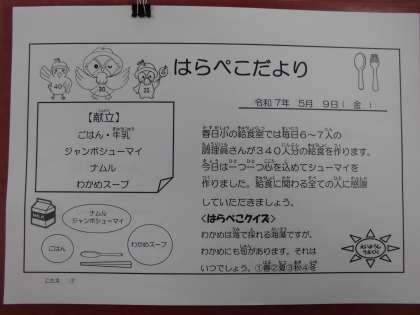 はらぺこだより
令和7年 5月 9日(金)
【献立】
ごはん・牛乳
ジャンボシューマイ
ナムル
わかめスープ
春日小の給食室では毎日6〜7人の
調理員さんが340人分の給食を作ります。
今日は一つ一つ心を込めてシューマイを
作りました。給食に関わる全ての人に感謝
していただきましょう。
<はらぺこクイズ>
わかめは海で採れる海藻ですが、
わかめにも旬があります。それは
いつでしょう。①春②夏③秋④冬
ナムル
ジャンボシューマイ
ごはん
わかめスープ